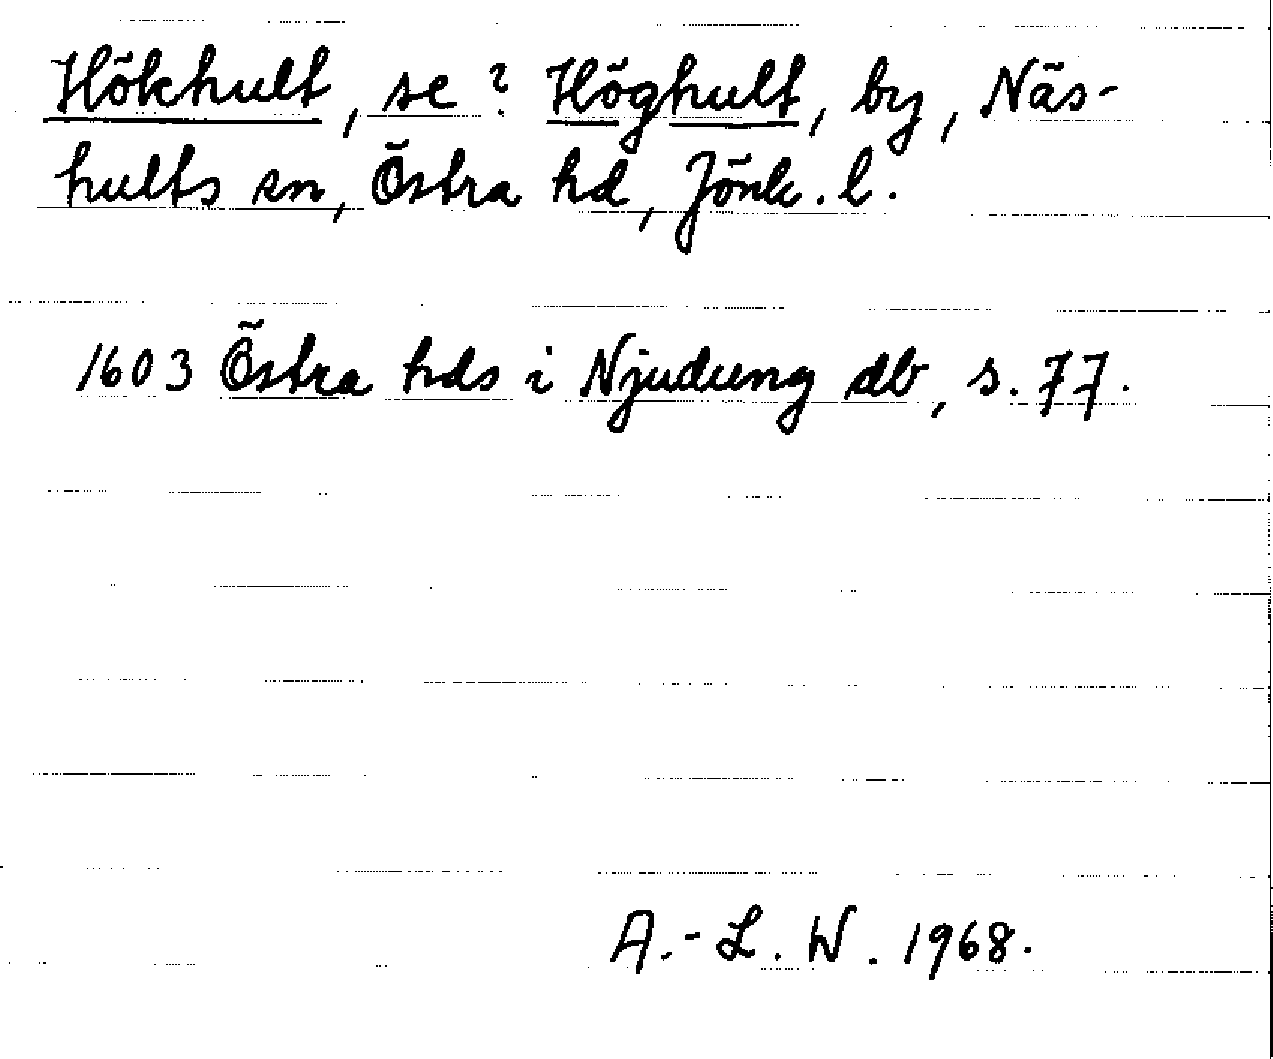 Hökhult, se? Höghult, by, Näs-
hults sn, Östra hd, Jönk. l.
1603 Östra hds i Njudung db, s. 77.
A.-L. W. 1968.